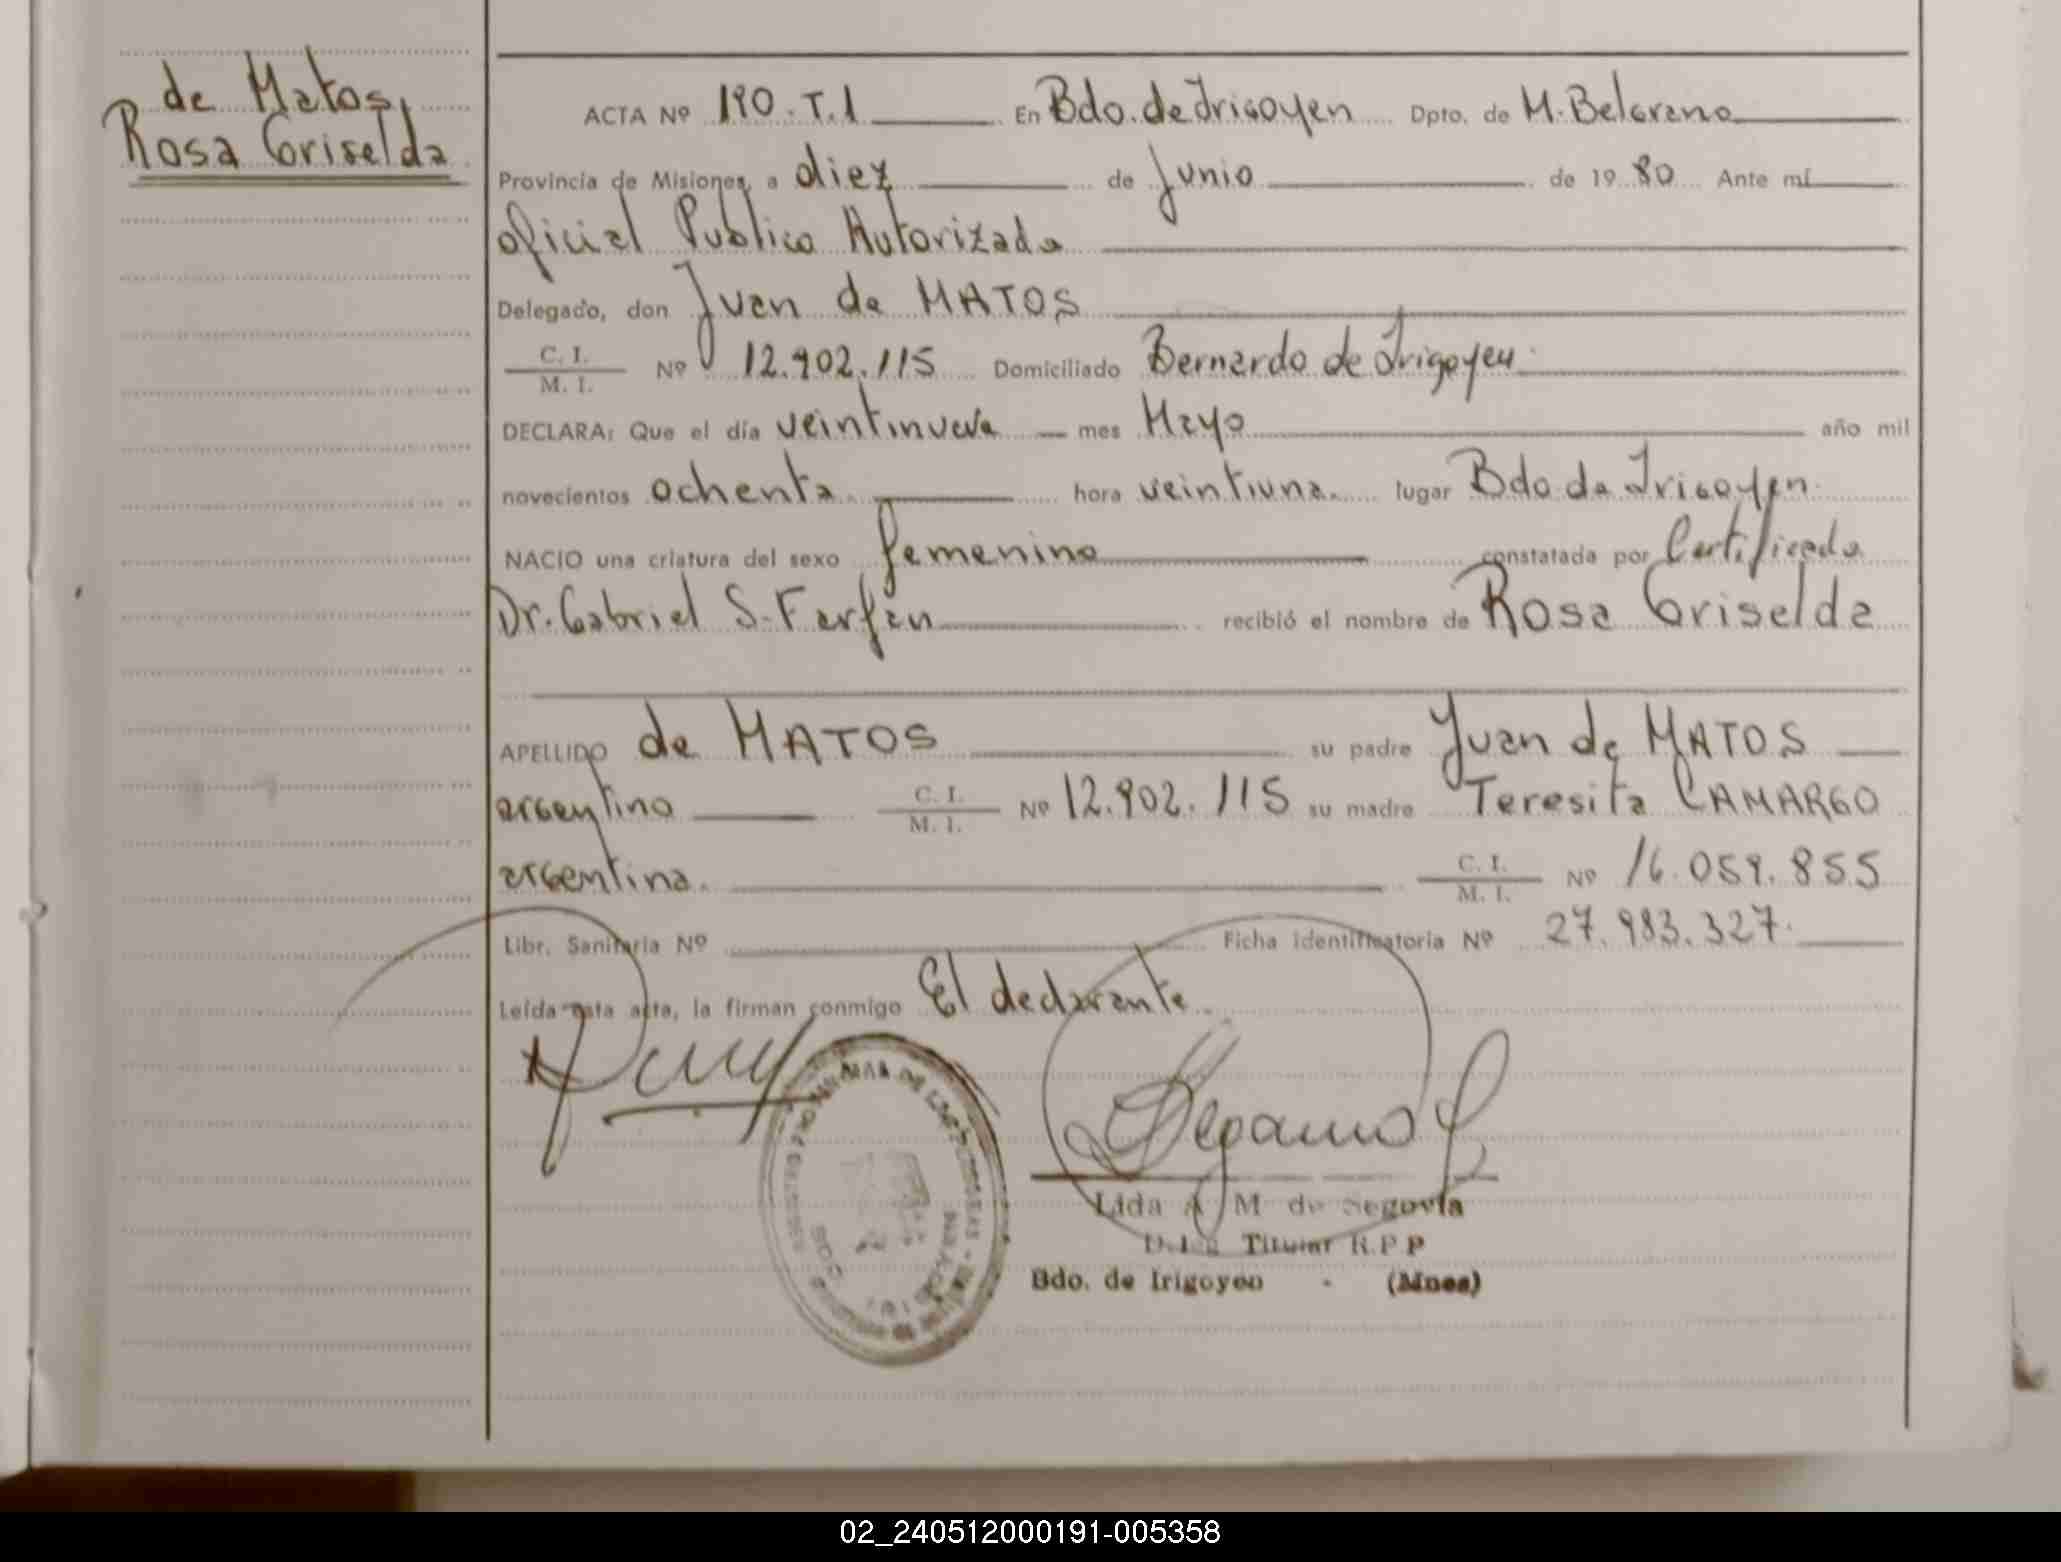 de Matos,
Rosa Griselda
ACTA Nº 190. T. 1 En Bdo. de Irigoyen Dpto. de M. Belgrano
Provincia de Misiones, a diez de Junio de 19 80 Ante mí
oficial Publico Autorizado
Delegado, don Juan de MATOS
C. I.
M. I. Nº 12.902.115 Domiciliado Bernardo de Irigoyen.
DECLARA: Que el día veintinueve mes Mayo año mil
novecientos ochenta. hora veintiuna. lugar Bdo de Irigoyen.
NACIO una criatura del sexo femenino constatada por Certificado
Dr. Gabriel S. Farfán recibió el nombre de Rosa Griselda
APELLIDO de MATOS su padre Juan de MATOS
argentino C. I.
M. I. Nº 12.902.115 su madre Teresita CAMARGO
argentina. C. I.
M. I. Nº 16.059.855
Libr. Sanitaria Nº Ficha identificatoria Nº 27.983.327.
Leída esta acta, la firman conmigo El declarante.
Lida A. M. de Segovia
Titular R.P.P
Bdo. de Irigoyen - (Mnes)
02_240512000191-005358